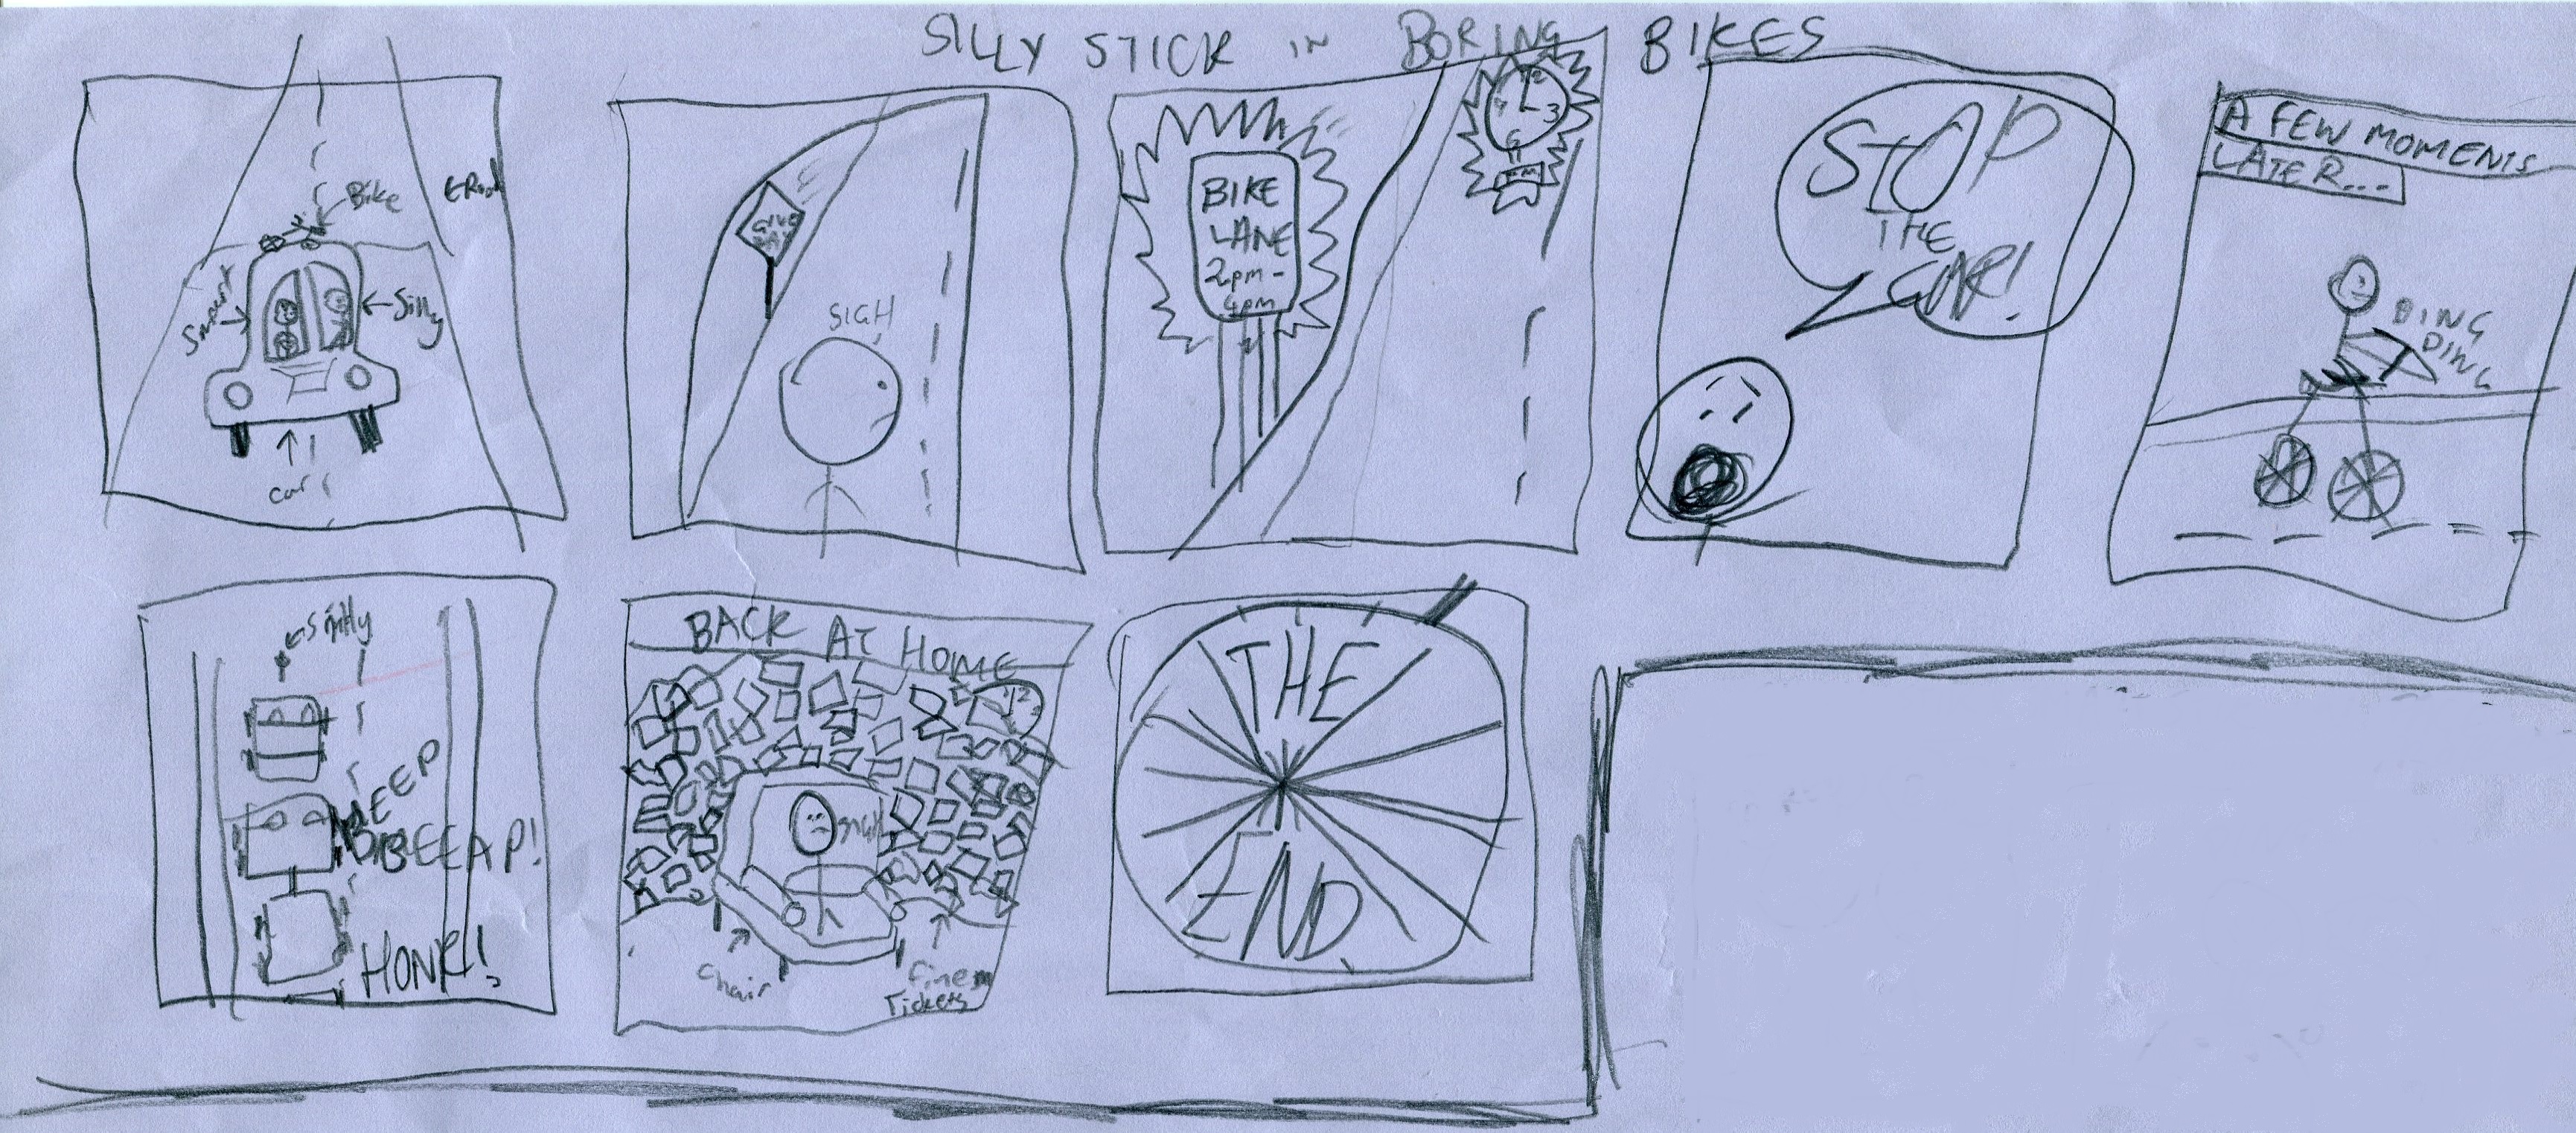 SILLY STICK IN BORING BIKES
Bike
←Road
Smart→
←Silly
↑
car
GIVE
WAY
SIGH
BIKE
LANE
2pm-
4pm
12
3
6
PM
STOP
THE
CAR!
A FEW MOMENTS
LATER...
DING
DING
←Silly
BEEP
BEEEAP!
HONK!
BACK AT HOME
12
3
SIGH
chair
fine
Tickets
THE
END